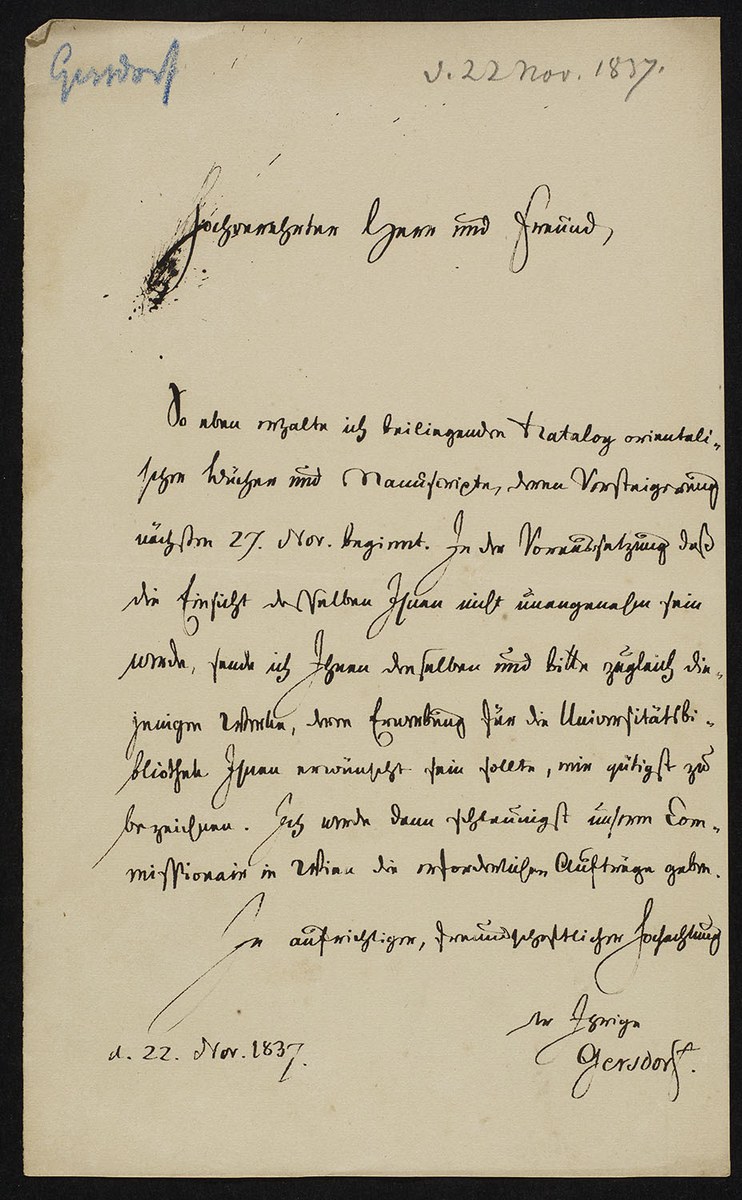 Gersdorf
d. 22 Nov. 1837.
Hochverehrter Herr und Freund,
So eben erhalte ich beiliegenden Katalog orientali-
scher Bücher und Manuscripte, deren Versteigerung
nächsten 27. Nov. beginnt. In der Voraussetzung daß
die Einsicht desselben Ihnen nicht unangenehm sein
werde, sende ich Ihnen denselben und bitte zugleich die-
jenigen Werke, deren Erwerbung für die Universitätsbi-
bliothek Ihnen erwünscht sein sollte, mir gütigst zu
bezeichnen. Ich werde dann schleunigst unserm Com-
missionair in Wien die erforderlichen Aufträge geben.
In aufrichtiger, freundschaftlicher Hochachtung
der Ihrige
d. 22. Nov. 1837.
Gersdorf.